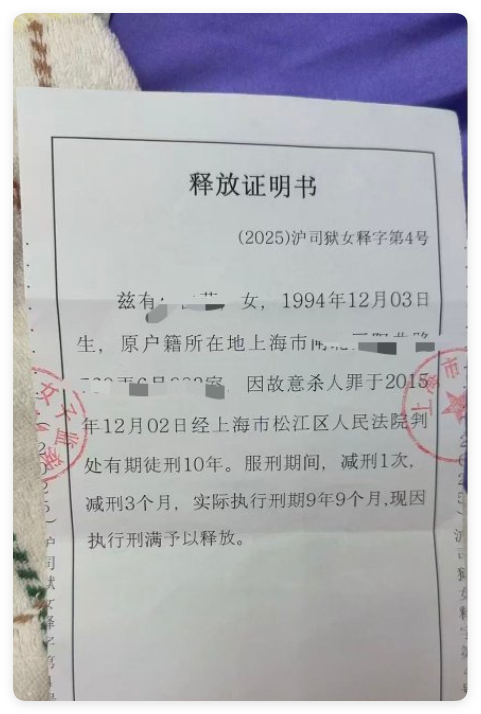 释放证明书
(2025)沪司狱女释字第4号
兹有 女，1994年12月03日
生，原户籍所在地上海市
室，因故意杀人罪于2015
年12月02日经上海市松江区人民法院判
处有期徒刑10年。服刑期间，减刑1次，
减刑3个月，实际执行刑期9年9个月,现因
执行刑满予以释放。
女子监狱
上海市